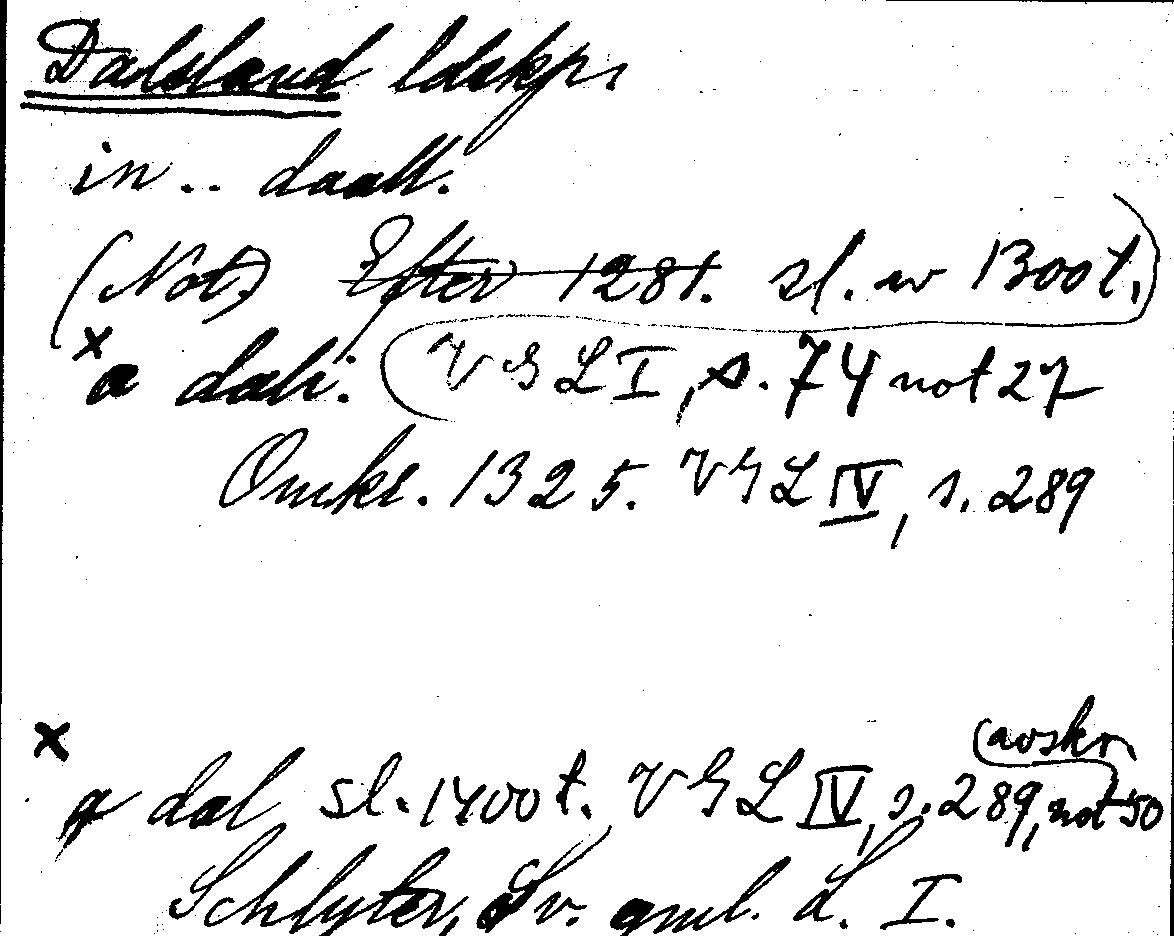 Dalsland ldskp.
in .. daall.
(Not) Efter 1281. sl. av 1300 t.
x a dali. VGL I, s. 74 not 27
Omkr. 1325. VGL IV, s. 289
x (avskr
a dal sl. 1400 t. VGL IV, s. 289, not 50
Schlyter, Sv. gml. L. I.